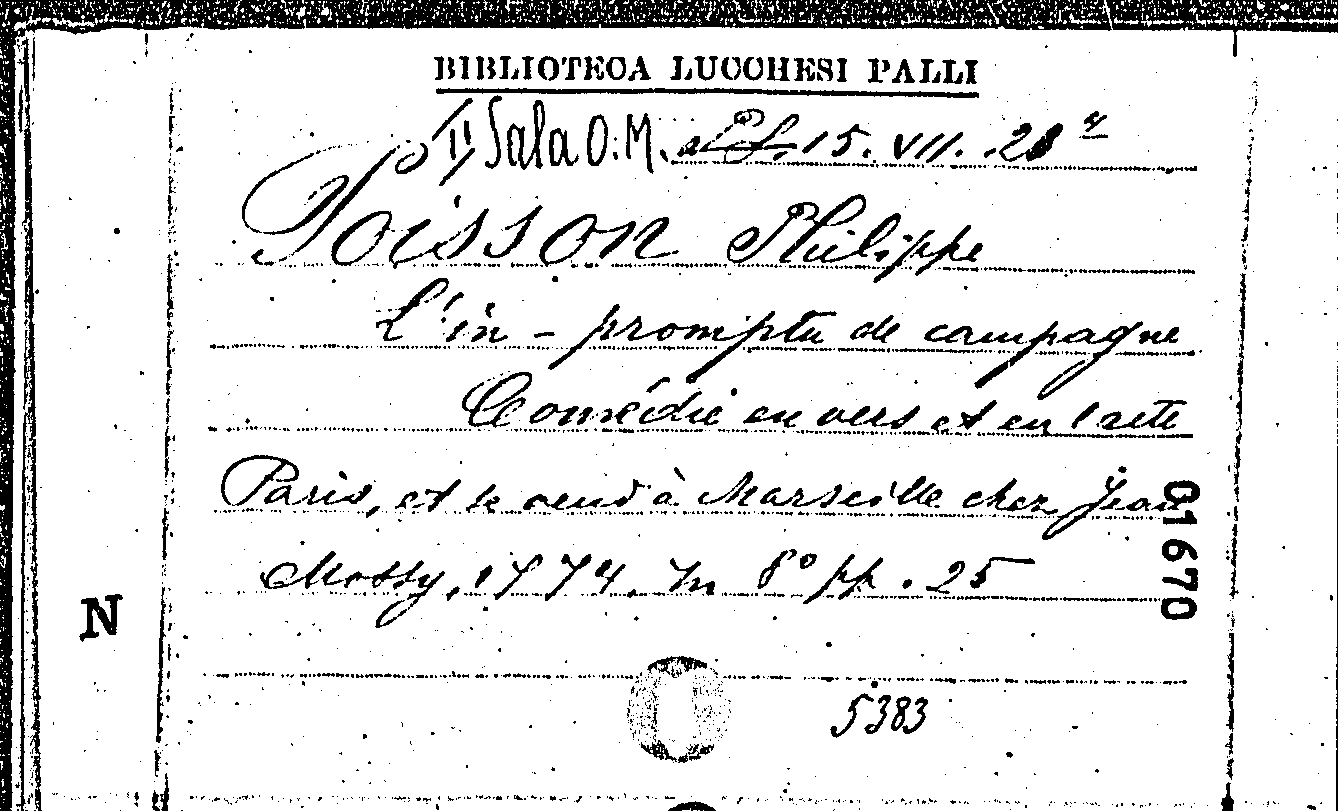 BIBLIOTECA LUCCHESI PALLI
II Sala O. M. 15. VII. 28
Poisson Philippe
L'in-promptu de campagne
Comédie en vers et en 1 acte
Paris, et se vend à Marseille chez Jean
Mossy, 1774. In 8° pp. 25
01670
N
5383